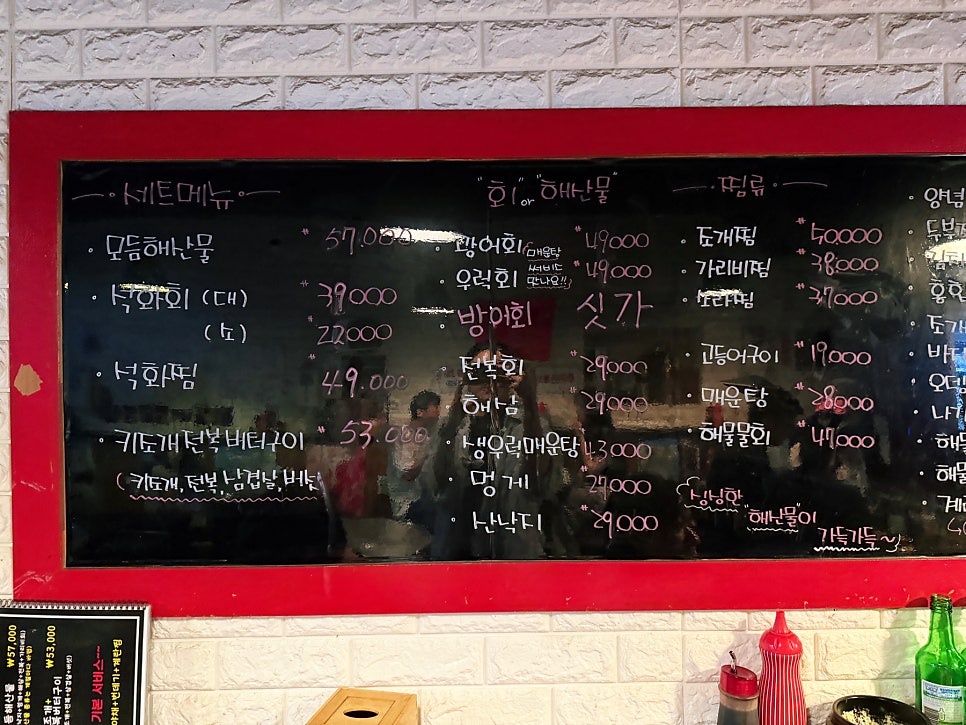 세트메뉴
· 모듬해산물 ₩ 57.000
· 석화회 (대) ₩ 39000
(소) ₩ 22000
· 석화찜 ₩ 49.000
· 키조개전복버터구이 ₩ 53.000
(키조개,전복,삼겹살,버섯
"회" or "해산물"
· 광어회 ₩49000
매운탕
써비스
맛나요!!
· 우럭회 ₩49000
· 방어회 싯가
· 전복회 ₩29000
· 해삼 ₩29000
· 생우럭매운탕 43000
· 멍게 ₩27000
· 산낙지 ₩29,000
찜류
· 조개찜 ₩50.000
· 가리비찜 ₩38,000
· 소라찜 ₩37,000
· 고등어구이 ₩19,000
· 매운탕 ₩38000
· 해물물회 ₩47,000
싱싱한
"해산물"이
가득가득~
· 양념
· 조개
· 오뎅
· 해물
₩57,000
₩53,000
기본 서비스
야채+번데기+계란찜